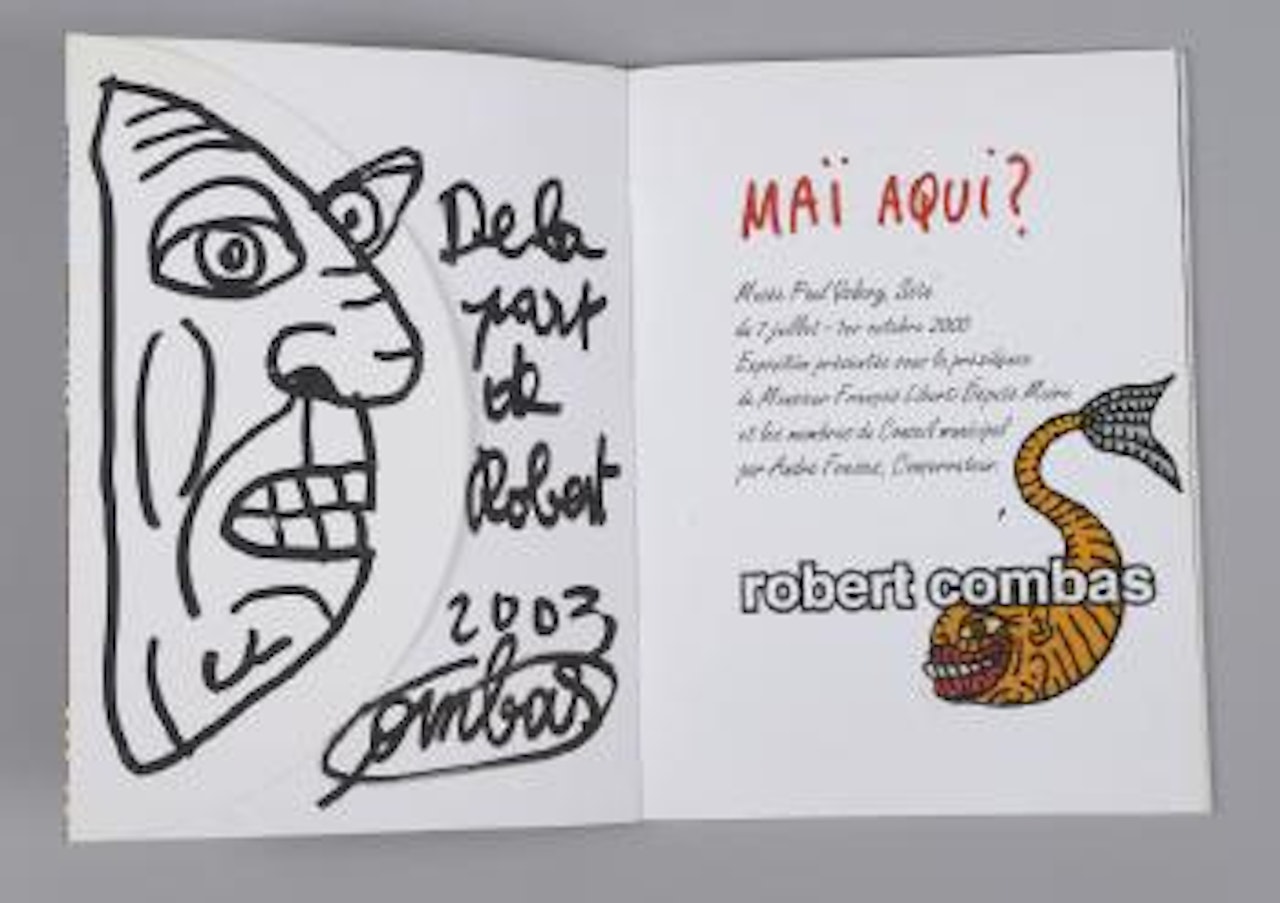 De la
part
de
Robert
2003
Combas
MAÏ AQUI?
Musée Paul Valéry, Sète
du 7 juillet - 1er octobre 2000
Exposition présentée sous la présidence
de Monsieur François Liberti Député Maire
et les membres du Conseil municipal
par André Conservateur.
robert combas